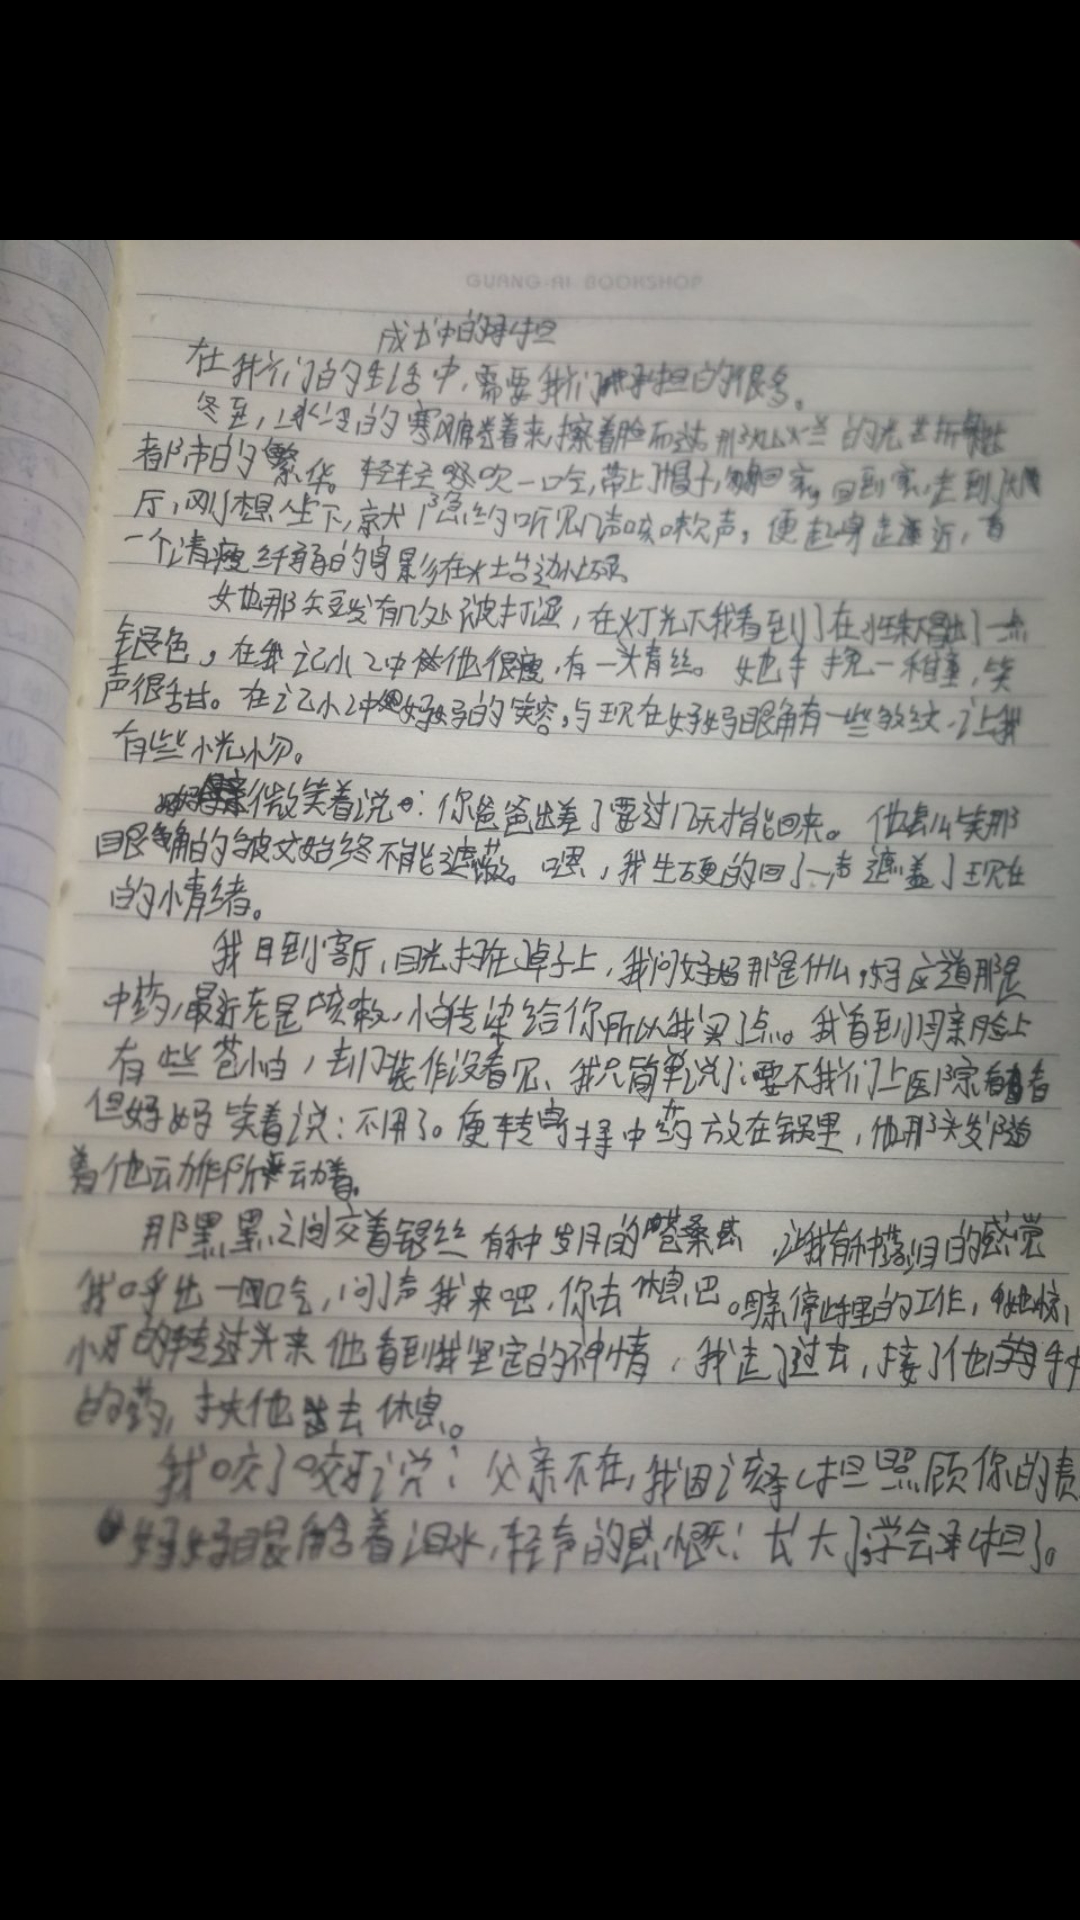 GUANG-AI BOOKSHOP
成长中的承担
在我们的生活中,需要我们承担的很多。
冬至,的寒风席卷着来,擦着脸而过,那的光芒折
都市的繁华。轻轻吹一口气,带上了帽子,回家,回到家,走到了大
厅,刚想坐下,就隐约听见几声咳嗽声,便起身走近,看
一个清瘦纤弱的身影在灶台边忙碌
她那头发有几处被打湿,在灯光下我看到了
银色,在我记忆中他很瘦,有一头青丝。她手挽一,笑
声很甜。在记忆中妈妈的笑容,与现在妈妈眼角有一些皱纹,让我
有些恍惚。
母亲微笑着说:你爸爸出差了要过几天才能回来。他怎么笑那
眼角的皱文始终不能遮蔽。嗯,我生硬的回了一声遮盖了现在
的情绪。
我回到客厅,目光打在桌子上,我问妈妈那是什么,妈应道那是
中药,最近老是咳嗽,怕转染给你所以我买了点。我看到母亲脸上
有些苍白,却装作没看见、我只简单说了:要不我们上医院看看
但妈妈笑着说:不用了。便转身将中药放在锅里,他那头发随
着他云动作所云动着。
那黑黑之间交着银丝有种岁月的苍桑感 让我有种落泪的感觉
我呼出一口气,问声我来吧,你去休息吧。母亲停手里的工作,她惊
讶的转过头来他看到我坚定的神情,我走了过去,接了他的手中
的药,扶他出去休息。
我咬了咬牙说:父亲不在,我因该承担照顾你的责
妈妈眼角含着泪水,轻声的感慨:长大了,学会承担了。